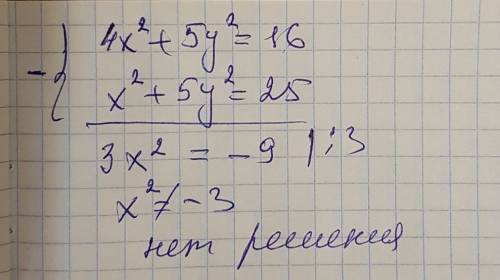 - { 4x² + 5y² = 16
x² + 5y² = 25
3x² = -9 | :3
x² ≠ -3
нет решения